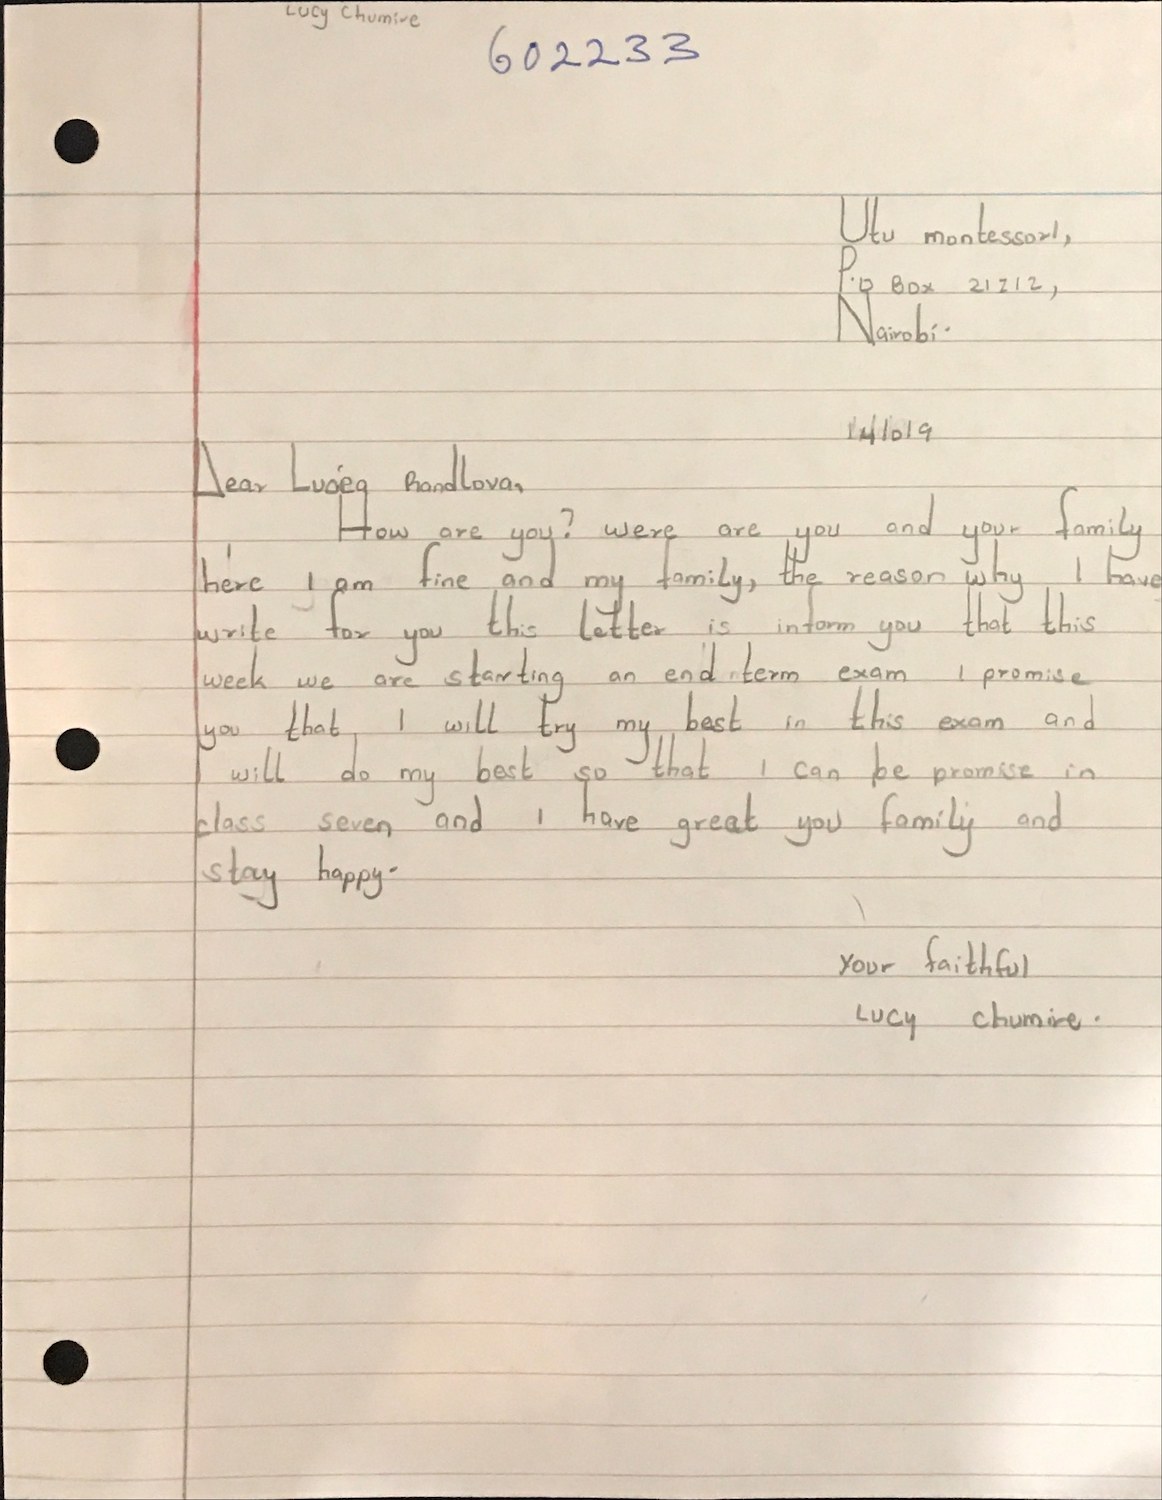 Lucy Chumire
602233
Utu montessori,
P.o Box 21212,
Nairobi.
14/10/19
Dear Randlova,
How are you? were are you and your family
here I am fine and my family, the reason why I have
write for you this letter is inform you that this
week we are starting an end term exam I promise
you that I will try my best in this exam and
I will do my best so that I can be promise in
class seven and I have great you family and
stay happy.
Your faithful
Lucy Chumire.